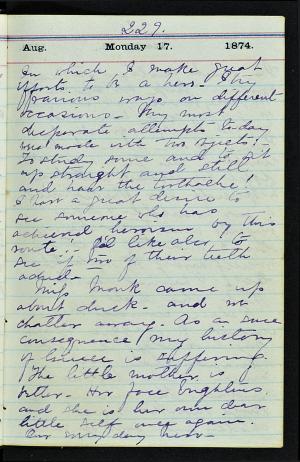 229.
Aug. Monday 17. 1874.
In which I make great
efforts to be a hero - In
various ways on different
occasions - My most
desperate attempts today
was made with two
To study some and sit
up straight and still
and have the toothache!
I have a great desire to
see someone who has
achieved heroism by this
route! - I'd like also to
see if of their teeth
ached -
Miss Monk came up
about dusk - and we
chatter away. As a sure
consequence my history
of Greece is suffering.
The little mother is
better. Her face brightens
and she is her own dear
little self once again.
Our day here -